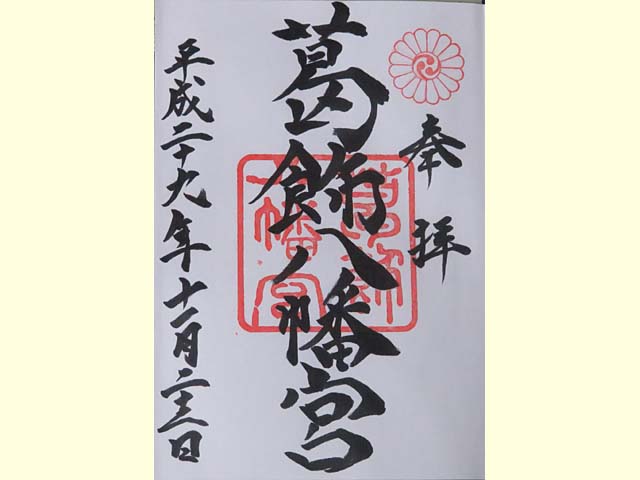 奉拝
葛飾八幡宮
葛飾
八幡宮
平成二十九年十一月二十三日